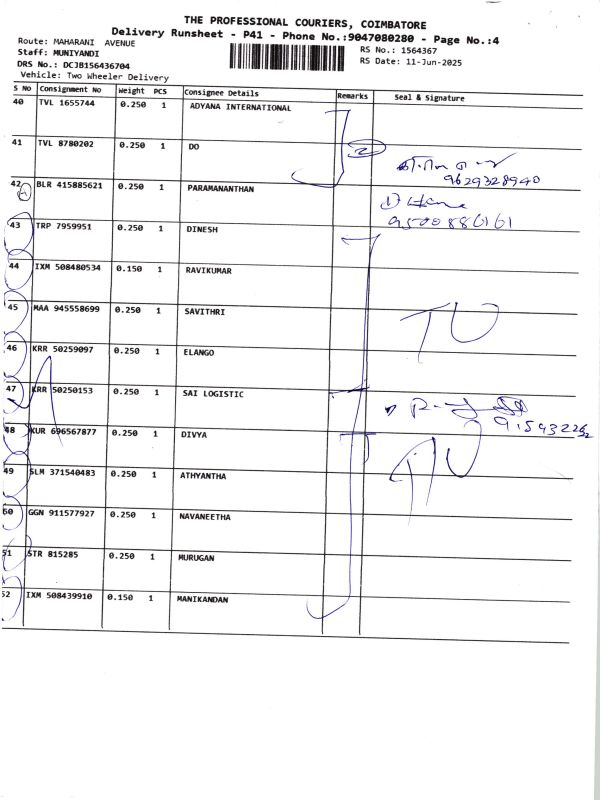 THE PROFESSIONAL COURIERS, COIMBATORE
Delivery Runsheet - P41 - Phone No.:9047080280 - Page No.:4
Route: MAHARANI AVENUE
RS No.: 1564367
Staff: MUNIYANDI
RS Date: 11-Jun-2025
DRS No.: DCJB156436704
Vehicle: Two Wheeler Delivery
S No Consignment No Weight PCS Consignee Details Remarks Seal & Signature
40 TVL 1655744 0.250 1 ADYANA INTERNATIONAL
41 TVL 8780202 0.250 1 DO 2
9629328940
42 BLR 415885621 0.250 1 PARAMANANTHAN
9500886161
43 TRP 7959951 0.250 1 DINESH
44 IXM 508480534 0.150 1 RAVIKUMAR
45 MAA 945558699 0.250 1 SAVITHRI
46 KRR 50259097 0.250 1 ELANGO
47 KRR 50250153 0.250 1 SAI LOGISTIC
48 KUR 696567877 0.250 1 DIVYA
49 SLM 371540483 0.250 1 ATHYANTHA
50 GGN 911577927 0.250 1 NAVANEETHA
51 STR 815285 0.250 1 MURUGAN
52 IXM 508439910 0.150 1 MANIKANDAN